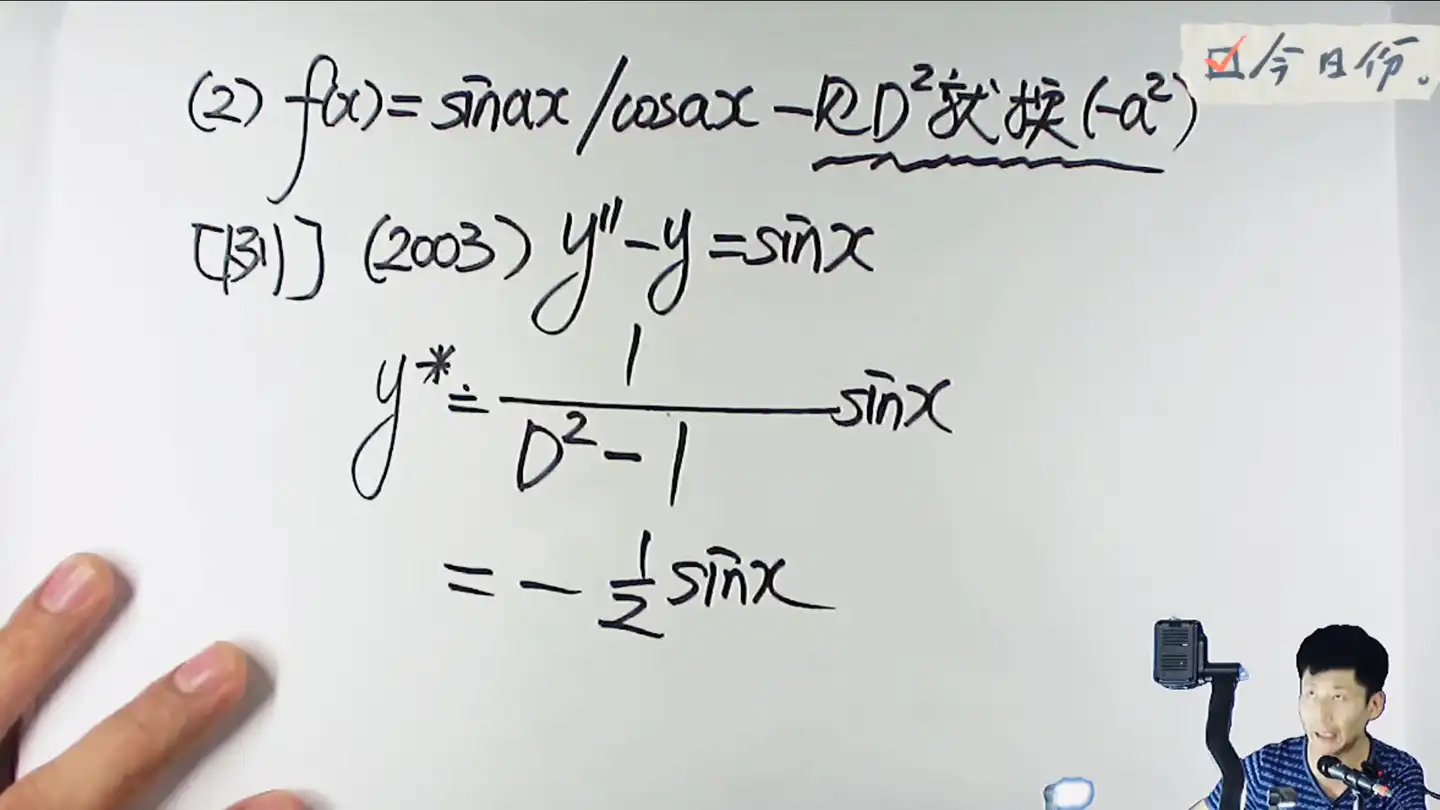 (2) f(x)=sinax/cosax-见D²就换(-a²)
今日份。
[例] (2003) y''-y=sinx
y*=1/(D²-1) sinx
=-1/2 sinx